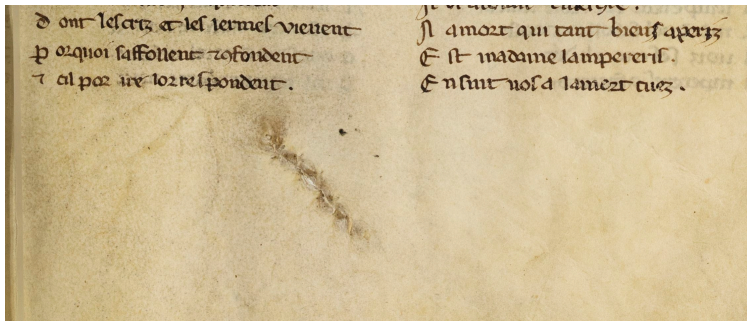 d ont les criz et les lermes vienent
p orquoi saffolient ⁊ ofondent
⁊ cil por ire lor respondent .
A amort qui tant biens aperz
E st madame lampereriſ .
E nsint nos a lamort tuez .